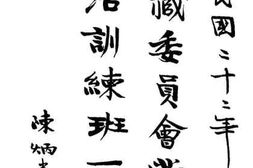 國二十二年
藏委員會
訓練班
陳炳